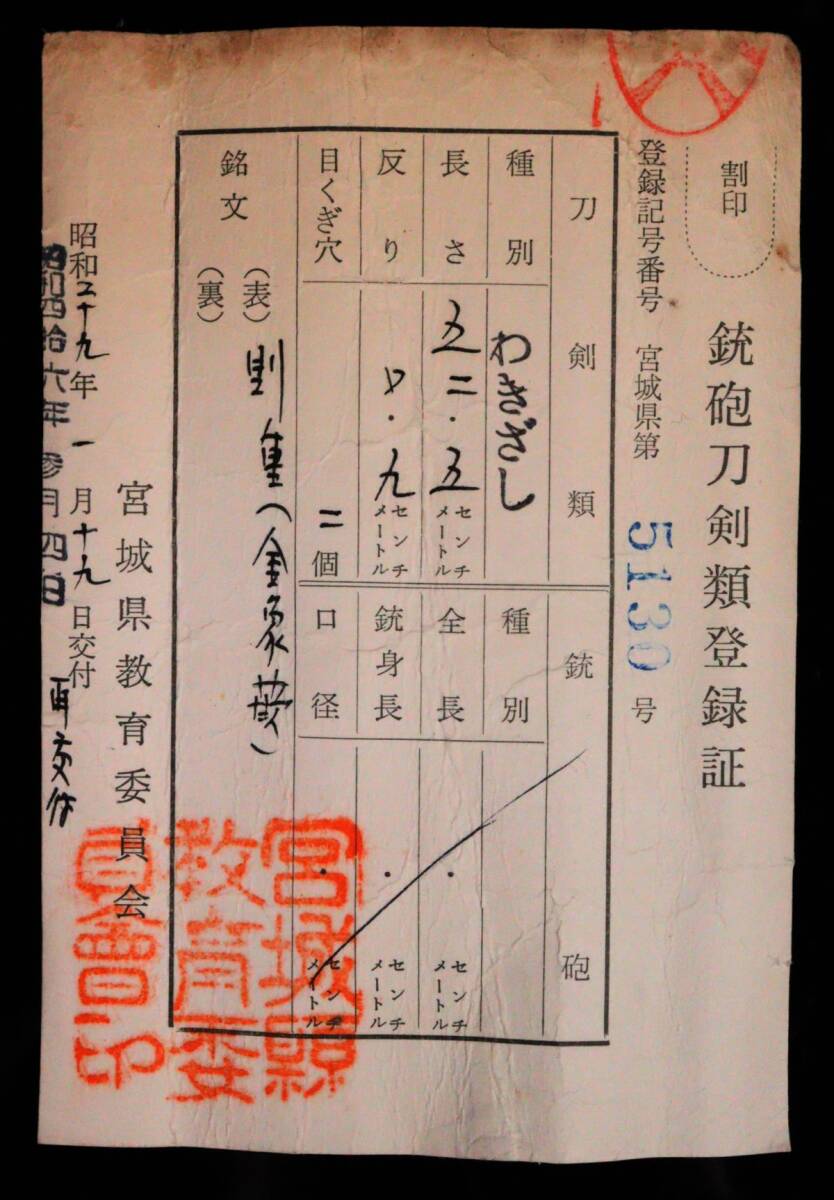 割印
銃砲刀剣類登録証
登録記号番号 宮城県第 5130 号
刀剣類
種別 わきざし
長さ 五二・五 センチメートル
反り 〇・九 センチメートル
目くぎ穴 二個
銃砲
種別
全長 ・ センチメートル
銃身長 ・ センチメートル
口径 ・ センチメートル
銘文 (表) 則重(金象嵌)
(裏)
宮城県教育委員会
昭和二十九年一月十九日交付
昭和四拾六年参月四日 再交付
宮城縣
教育委
員會印